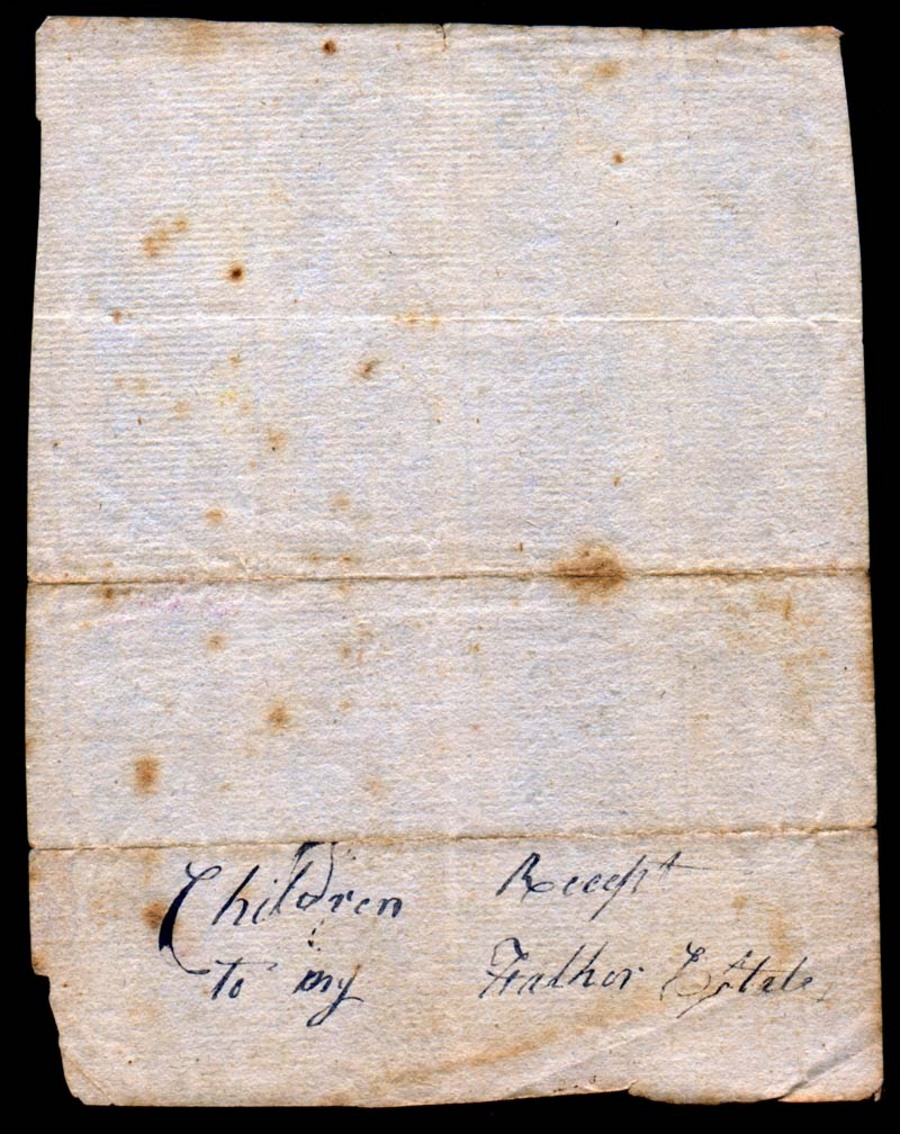 Children Recept
to my Father Estate